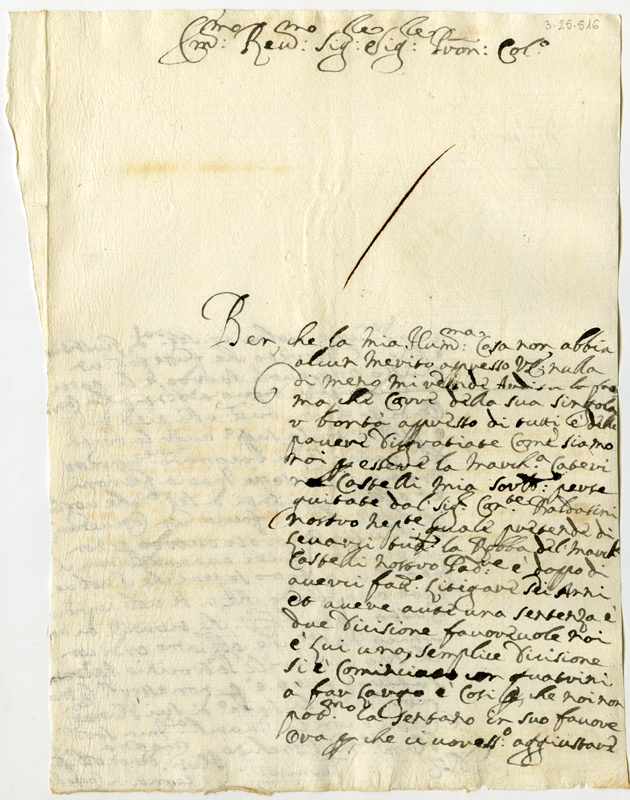 3-25-516
Ill:mo Rev:mo Sig:re Sig:re Pron: Col:o
Ben che la mia Illum:ma Casa non abbia
alcun merito appesso VS nulla
di meno mi rende Ardita la fa
ma che Corre della sua singola
r bontà appresso di tutti è delle
povere disgratiate Come siamo
noi p essere la March:a Cateri
na Castelli mia perse
guitate dal Sig: Con:te Baldasini
nostro nepte quale pretende di
levarci tut: la Robba del March
Castelli nostro Pad:e è doppo di
averci fat: litigare sei Anni
et avere aute una sentenza è
due dicisione favorevole noi
è lui una semplice dicisione
si è Cominciato con quatrini
à far largo è Così che noi non
pot:mo la sentano in suo favore
Ora p che ci voress:o aggiustare